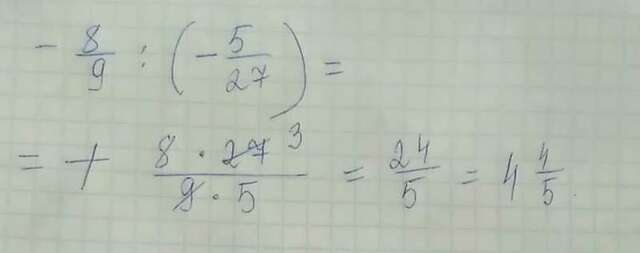 - 8/9 : (- 5/27) =
= + 8 · 27 3 / 9 · 5 = 24/5 = 4 4/5.